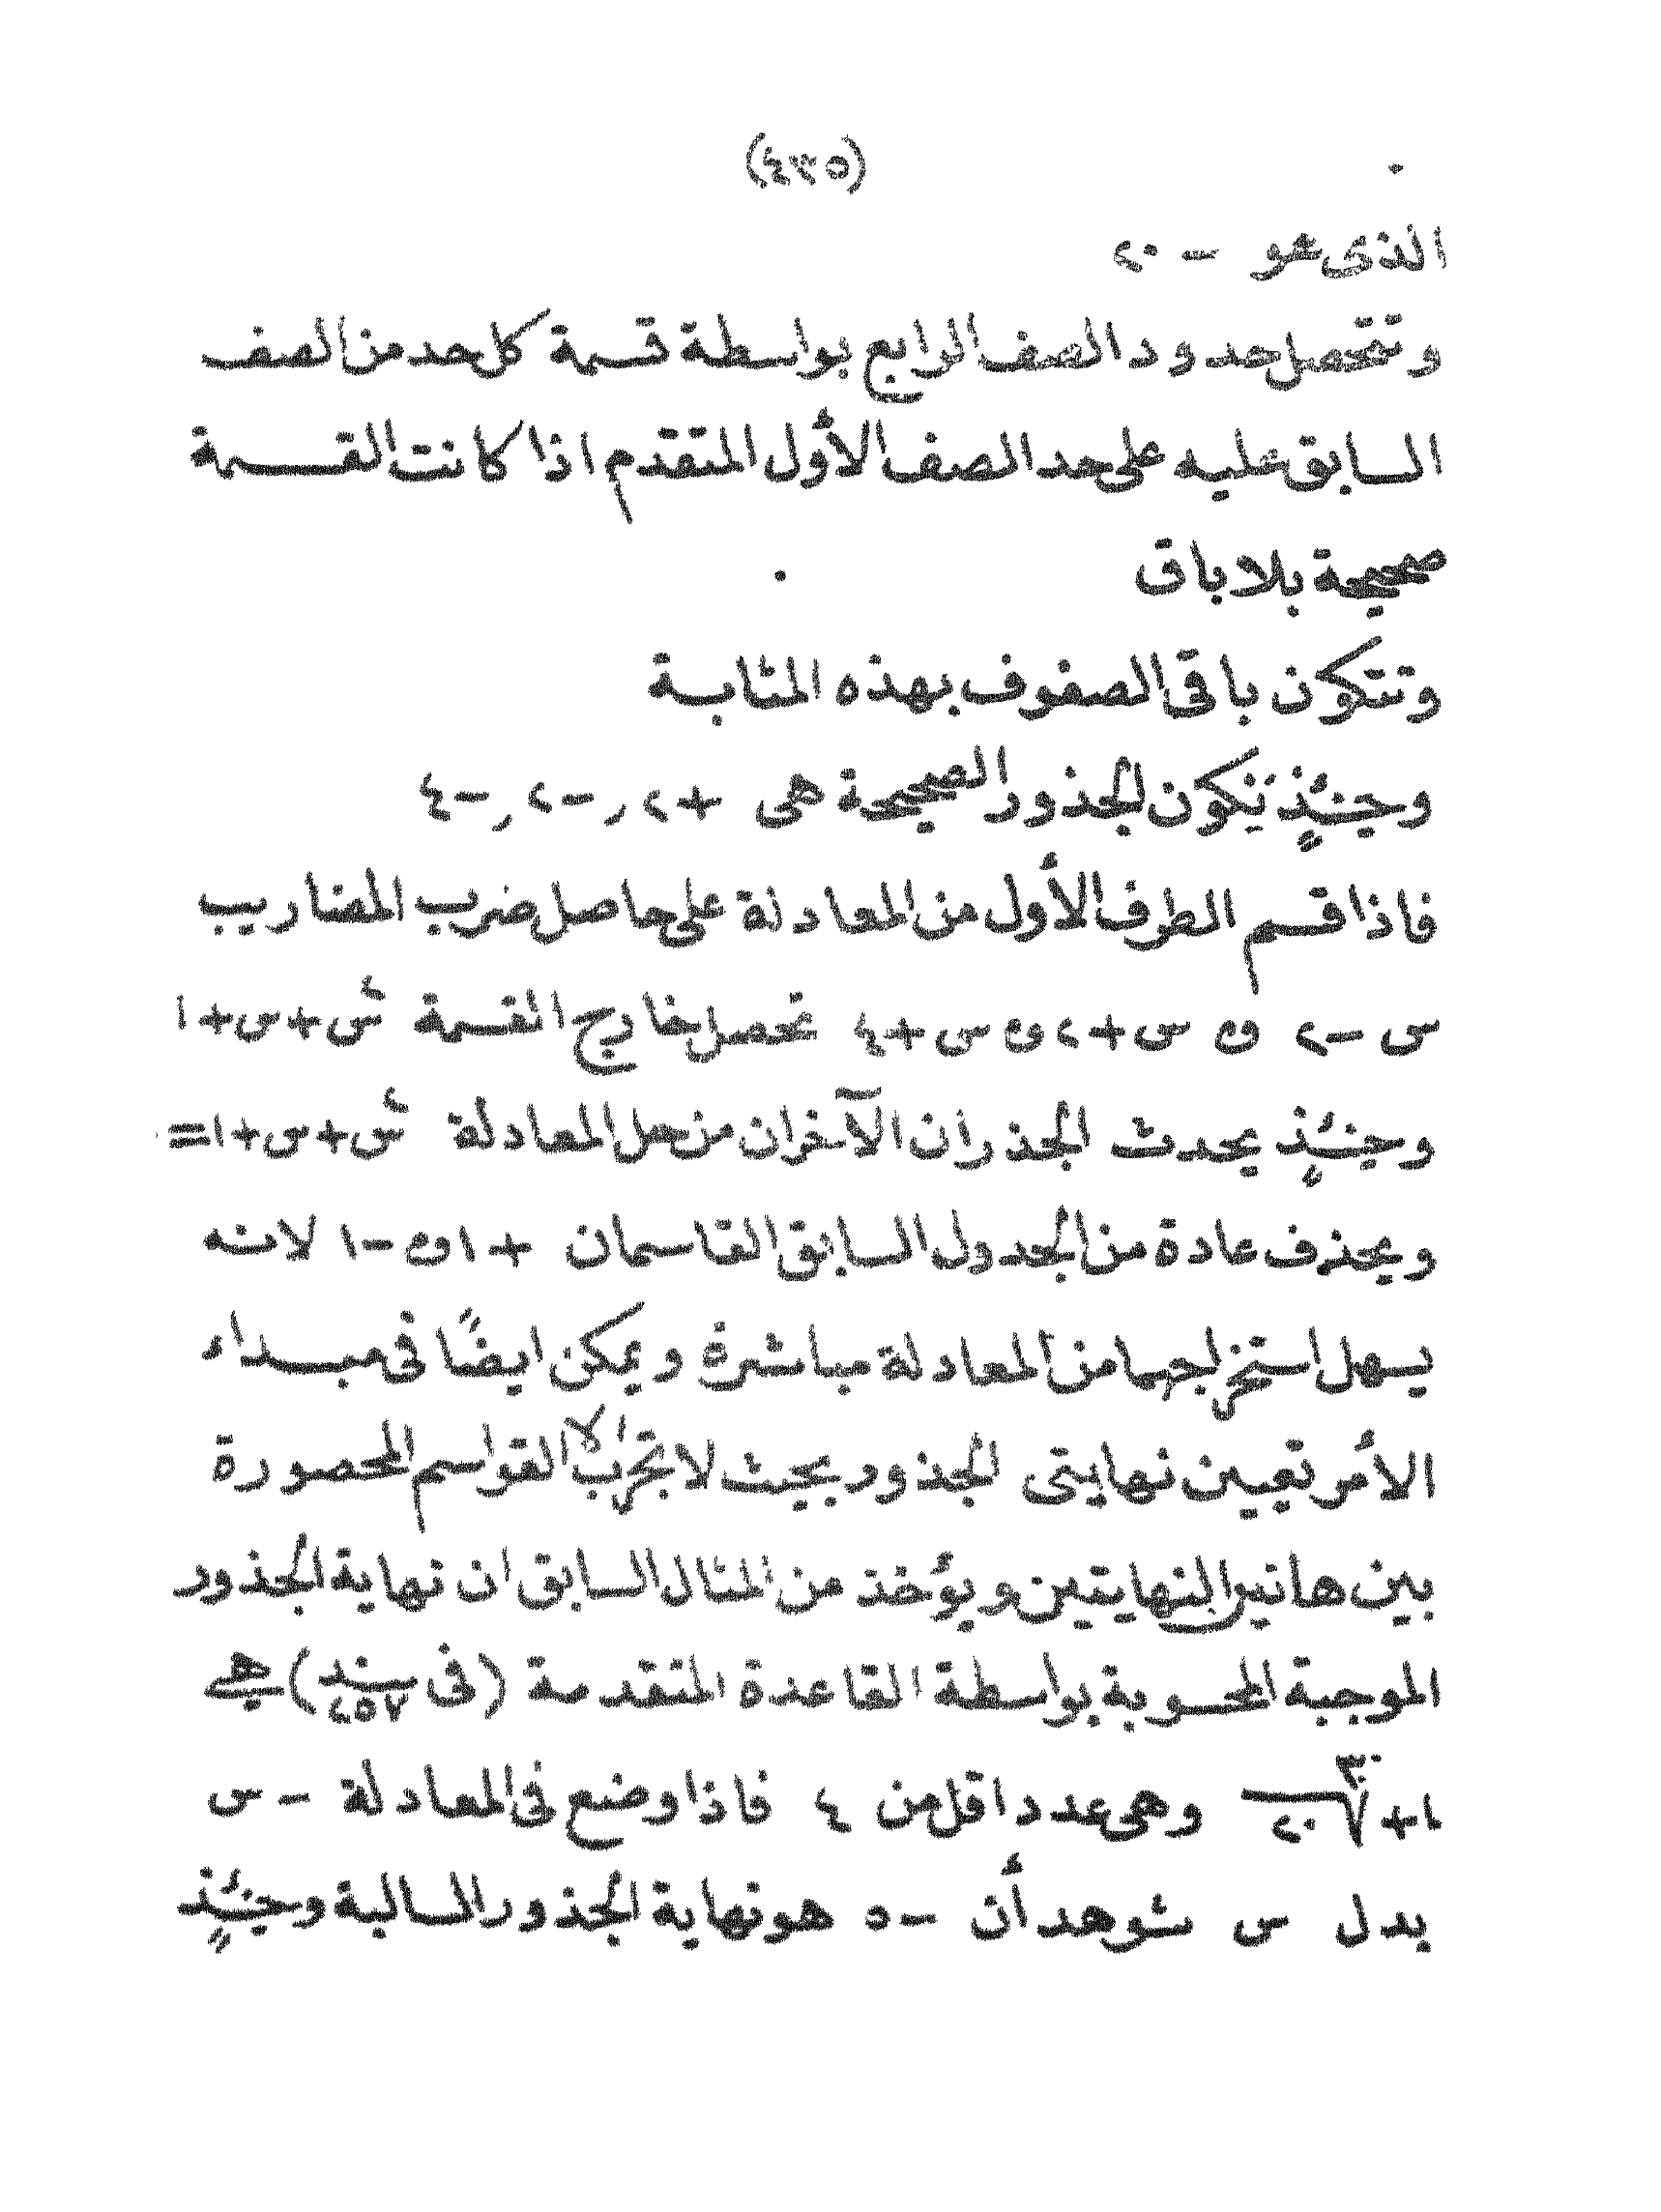 (٤٣٥)
الذى هو - ٢٠
وتتحصل حدود الصف الرابع بواسطة قسمة كل حد من الصف
السابق عليه على حد الصف الأول المتقدم اذا كانت القسمة
صحيحة بلا باق
وتتكون باقى الصفوف بهذه المثابة
وحينئذٍ تكون الجذور الصحيحة هى +٢ , -٢ , -٤
فاذا قسم الطرف الأول من المعادلة على حاصل ضرب المضاريب
س -٢ و س +٢ و س +٤ تحصل خارج القسمة س٢+س+س+١
وحينئذٍ يحدث الجذران الآخران من حل المعادلة س٢+س+س+١=٠
ويحذف عادة من الجدول السابق القاسمان +١ و -١ لانه
يسهل استخراجهما من المعادلة مباشرة ويمكن ايضًا فى مبداء
الأمر تعيين نهايتى الجذور بحيث لا تجرب الا القواسم المحصورة
بين هاتين النهايتين ويؤخذ من المثال السابق ان نهاية الجذور
الموجبة المحسوبة بواسطة القاعدة المتقدمة (فى بند ٤٥٧) هى
١+ ٣√٢٠ وهى عدد اقل من ٤ فاذا وضع فى المعادلة - س
بدل س شوهد أن -٥ هو نهاية الجذور السالبة وحينئذٍ